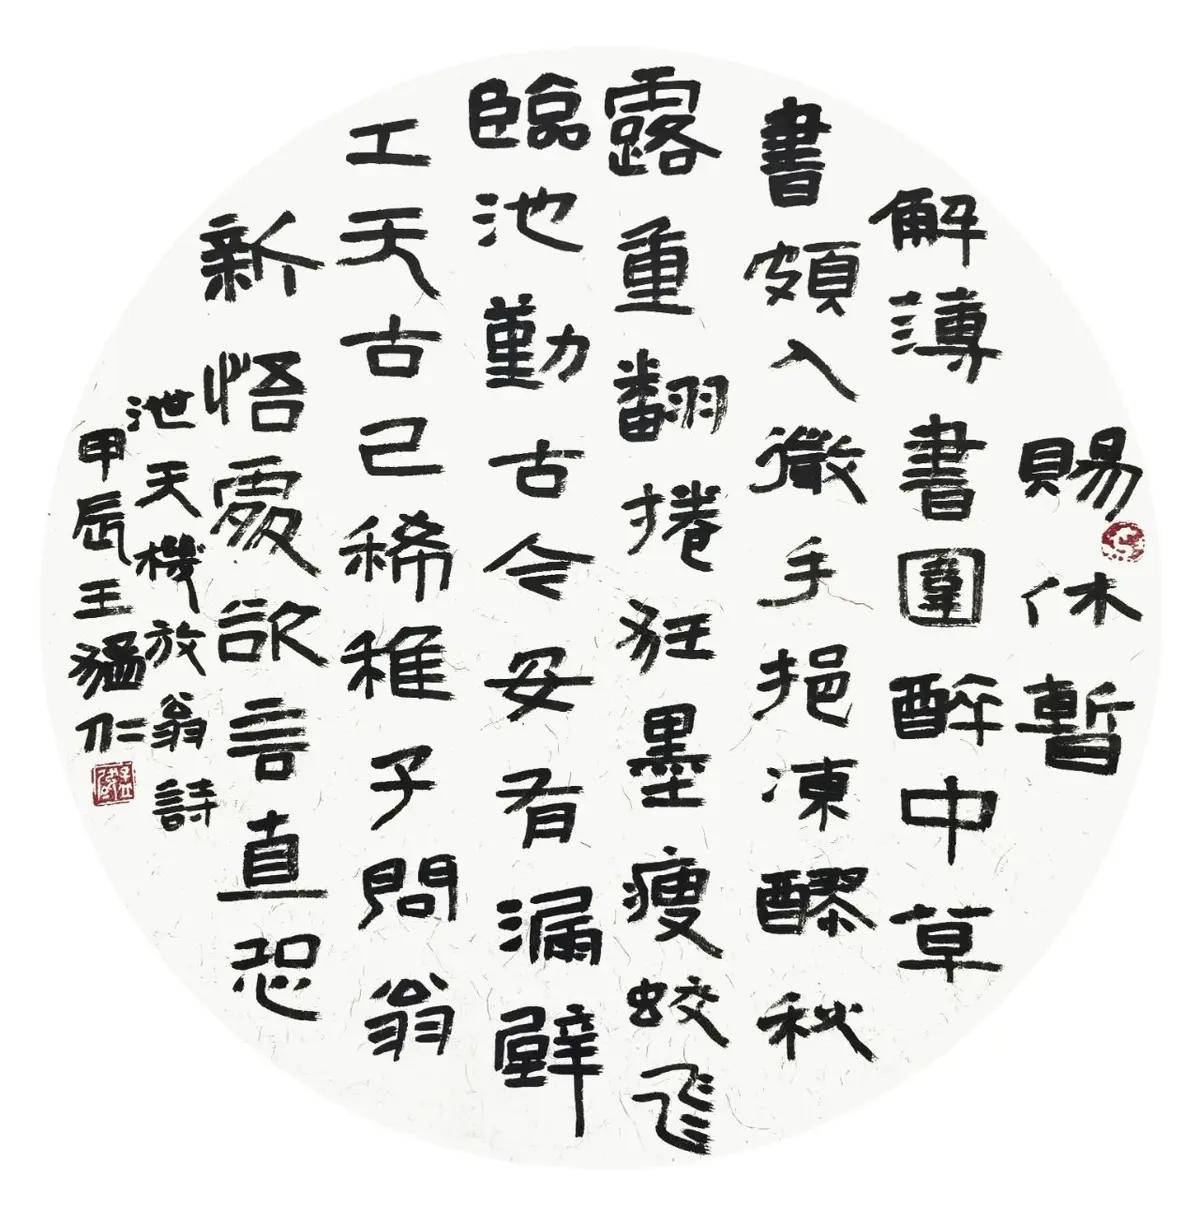 賜休暫
解薄書圍醉中草
書頗入微手挹凍醪秋
露重翻捲狂墨瘦蛟飛
臨池勤古今安有漏壁
工天古已稀稚子問翁
新悟處欲言直恐
泄天機放翁詩
甲辰王猛仁